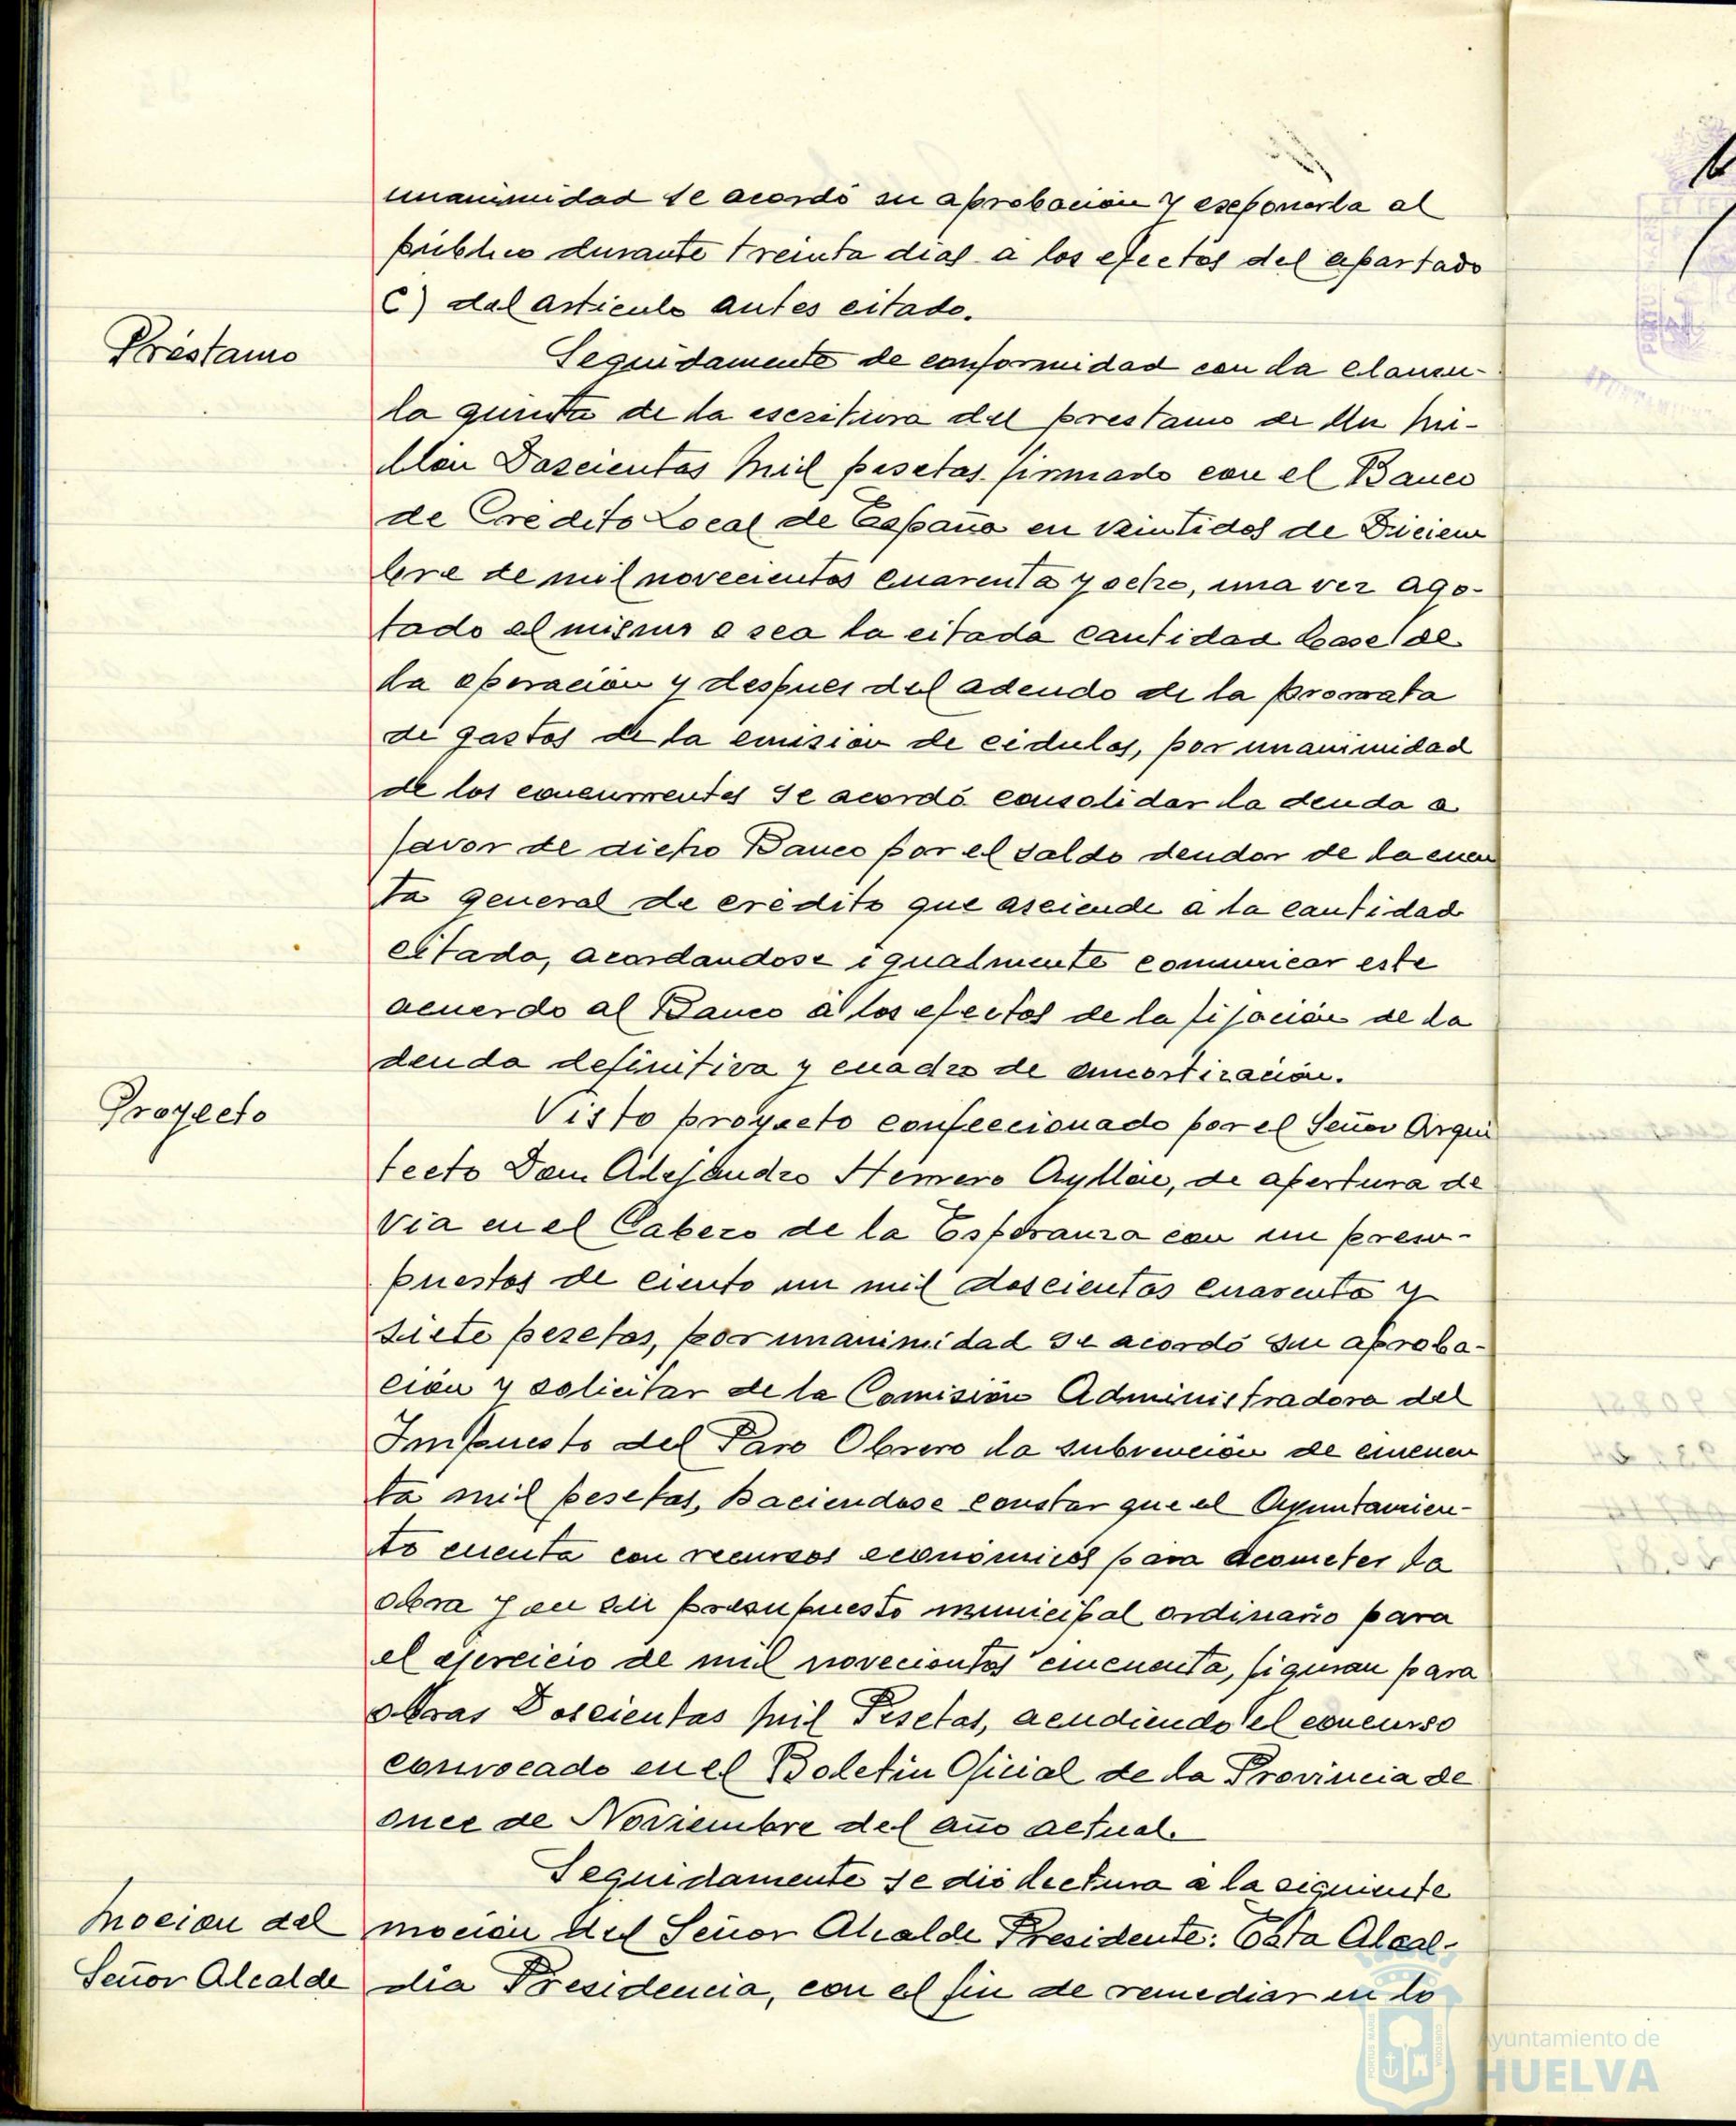 unanimidad se acordó su aprobación y exponerla al
público durante treinta dias a los efectos del apartado
C) del articulo antes citado.
Préstamo
Seguidamente de conformidad con la clausu-
la quinta de la escritura del prestamo de Un Mi-
llón Doscientas Mil pesetas firmado con el Banco
de Credito Local de España en veintidos de Diciem
bre de mil novecientos cuarenta y ocho, una vez ago-
tado el mismo o sea la citada cantidad base de
la operación y despues del adeudo de la prorrata
de gastos de la emision de cédulas, por unanimidad
de los concurrentes se acordó consolidar la deuda a
favor de dicho Banco por el saldo deudor de la cuen
ta general de crédito que asciende a la cantidad
citada, acordandose igualmente comunicar este
acuerdo al Banco a los efectos de la fijación de la
deuda definitiva y cuadro de amortización.
Proyecto
Visto proyecto confeccionado por el Señor Arqui
tecto Don Alejandro Herrero Ayllón, de apertura de
Via en el Cabezo de la Esperanza con un presu-
puestos de ciento un mil doscientas cuarenta y
siete pesetas, por unanimidad se acordó su aproba-
ción y solicitar de la Comisión Administradora del
Impuesto del Paro Obrero la subvención de cincuen
ta mil pesetas, haciendose constar que el Ayuntamien-
to cuenta con recursos económicos para acometer la
obra y en su presupuesto municipal ordinario para
el ejercicio de mil novecientos cincuenta, figuran para
obras Doscientas Mil Pesetas, acudiendo al concurso
convocado en el Boletin Oficial de la Provincia de
once de Noviembre del año actual.
Seguidamente se dió lectura a la siguiente
Mocion del
Señor Alcalde
moción del Señor Alcalde Presidente: Esta Alcal-
dia Presidencia, con el fin de remediar en lo
Ayuntamiento de
HUELVA